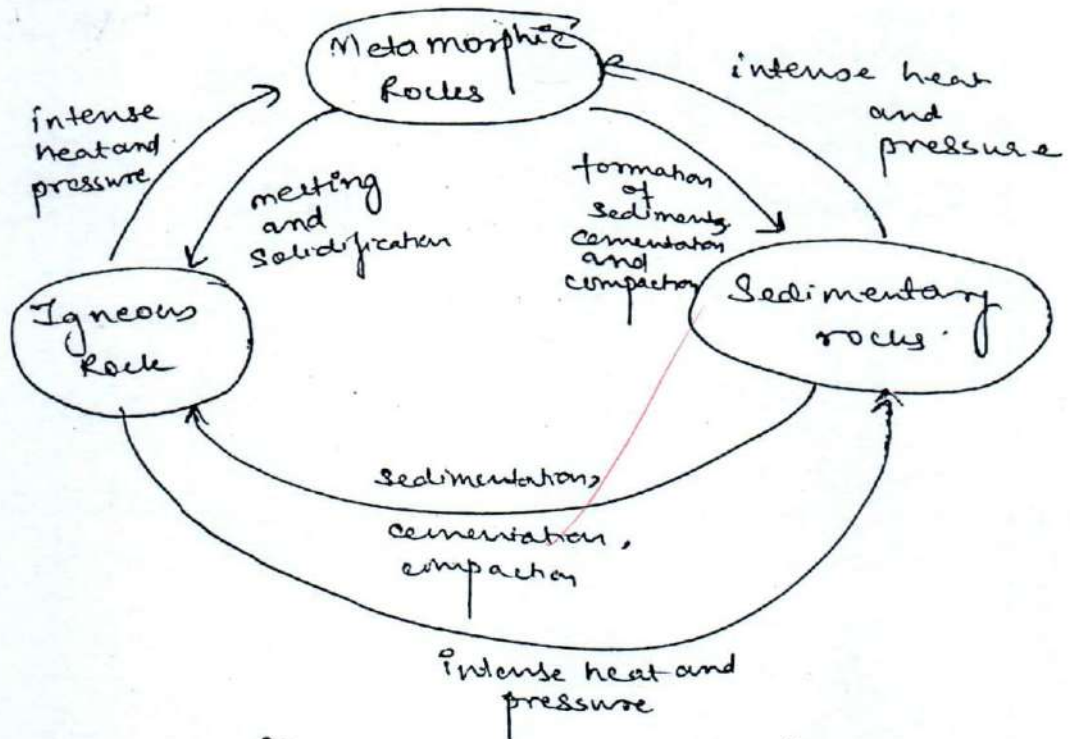 Metamorphic
Rocks
intense
heat and
pressure
intense heat
and
pressure
melting
and
solidification
formation
of
sediments,
cementation
and
compaction
Igneous
Rock
Sedimentary
rocks.
sedimentation,
cementation,
compaction
intense heat and
pressure